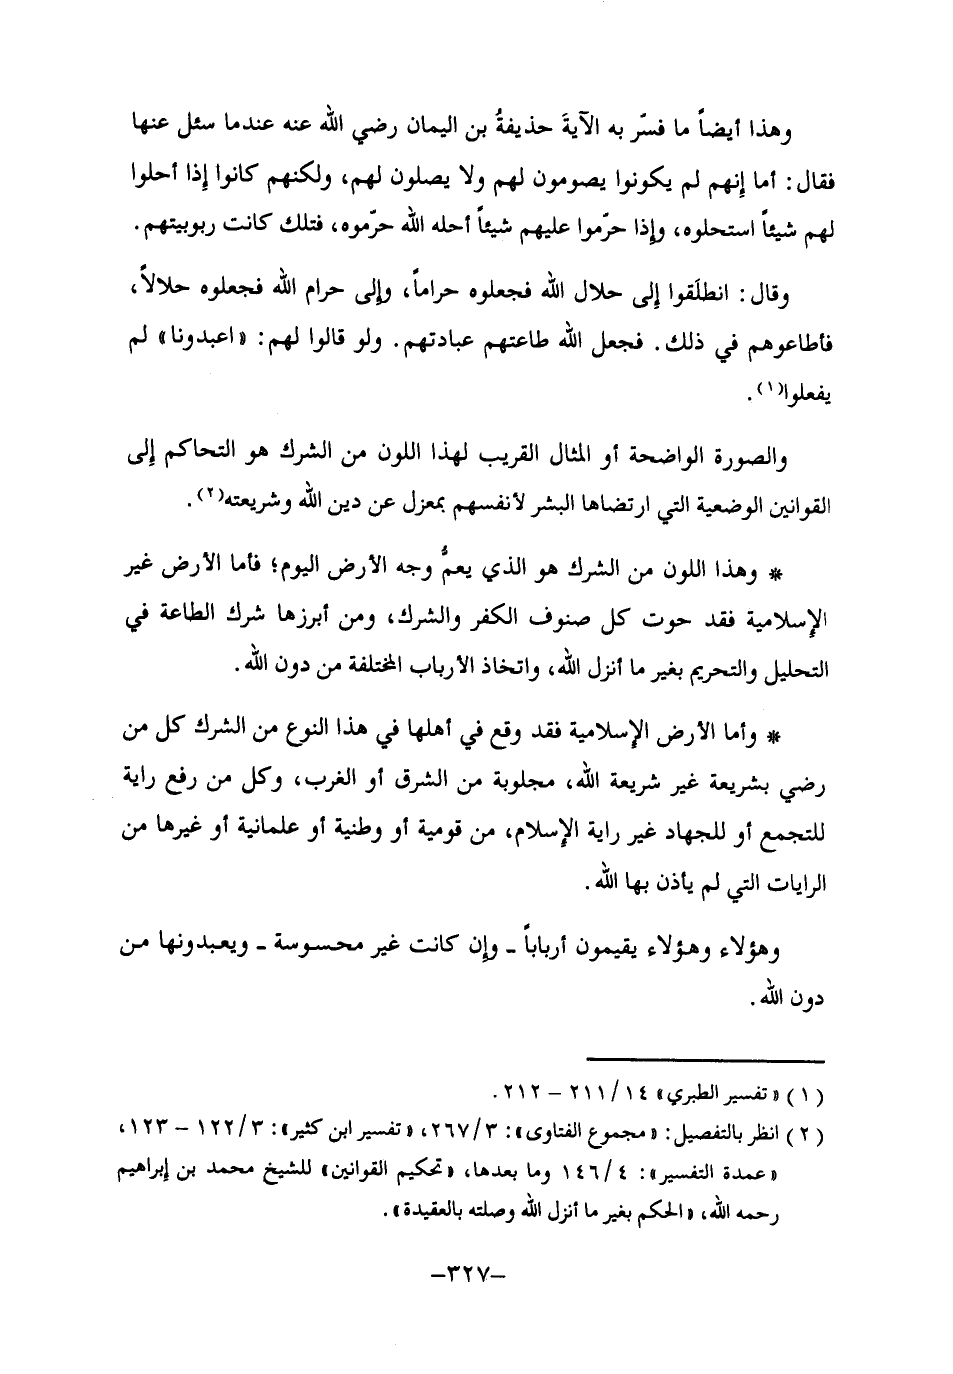 وهذا أيضاً ما فسّر به الآيةَ حذيفةُ بن اليمان رضي الله عنه عندما سئل عنها
فقال: أما إنهم لم يكونوا يصومون لهم ولا يصلون لهم، ولكنهم كانوا إذا أحلوا
لهم شيئاً استحلوه، وإذا حرّموا عليهم شيئاً أحله الله حرّموه، فتلك كانت ربوبيتهم.
وقال: انطلَقوا إلى حلال الله فجعلوه حراماً، وإلى حرام الله فجعلوه حلالاً،
فأطاعوهم في ذلك. فجعل الله طاعتهم عبادتهم. ولو قالوا لهم: «اعبدونا» لم
يفعلوا(١).
والصورة الواضحة أو المثال القريب لهذا اللون من الشرك هو التحاكم إلى
القوانين الوضعية التي ارتضاها البشر لأنفسهم بمعزل عن دين الله وشريعته(٢).
* وهذا اللون من الشرك هو الذي يعمُّ وجه الأرض اليوم؛ فأما الأرض غير
الإسلامية فقد حوت كل صنوف الكفر والشرك، ومن أبرزها شرك الطاعة في
التحليل والتحريم بغير ما أنزل الله، واتخاذ الأرباب المختلفة من دون الله.
* وأما الأرض الإسلامية فقد وقع في أهلها في هذا النوع من الشرك كل من
رضي بشريعة غير شريعة الله، مجلوبة من الشرق أو الغرب، وكل من رفع راية
للتجمع أو للجهاد غير راية الإسلام، من قومية أو وطنية أو علمانية أو غيرها من
الرايات التي لم يأذن بها الله.
وهؤلاء وهؤلاء يقيمون أرباباً ـ وإن كانت غير محسوسة ـ ويعبدونها من
دون الله.
(١) «تفسير الطبري» ١٤/ ٢١١ – ٢١٢.
(٢) انظر بالتفصيل: «مجموع الفتاوى»: ٣/ ٢٦٧، «تفسير ابن كثير»: ٣/ ١٢٢ – ١٢٣،
«عمدة التفسير»: ٤/ ١٤٦ وما بعدها، «تحكيم القوانين» للشيخ محمد بن إبراهيم
رحمه الله، «الحكم بغير ما أنزل الله وصلته بالعقيدة».
–٣٢٧–